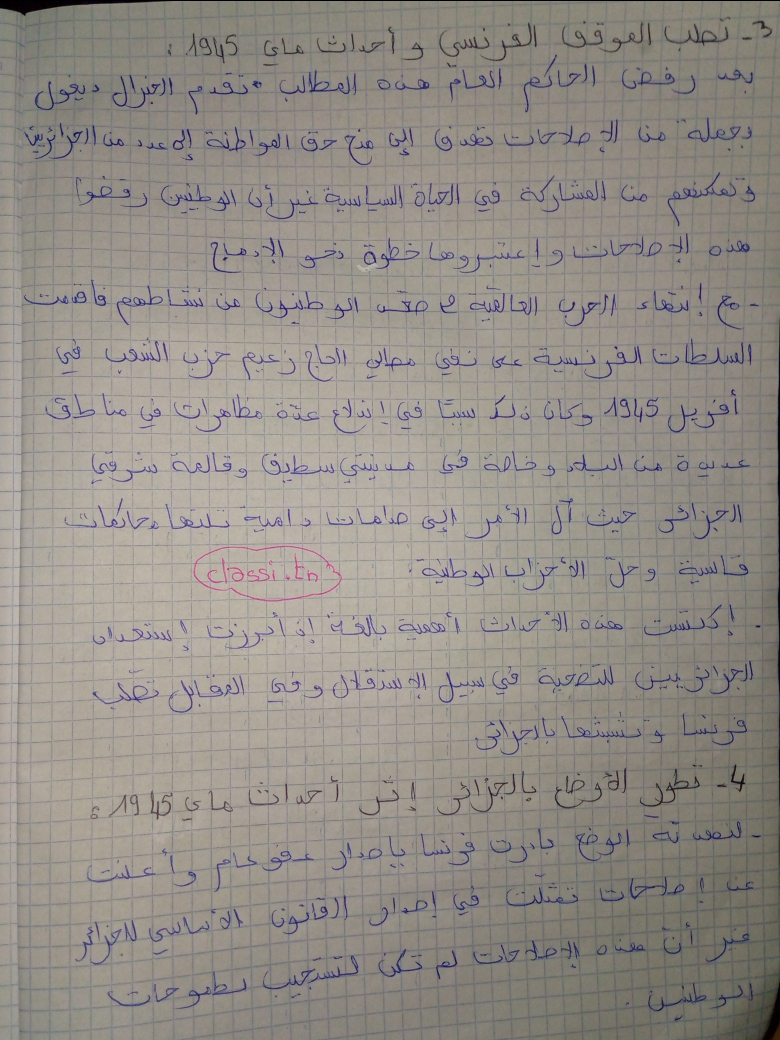 3- تصلب الموقف الفرنسي و أحداث ماي 1945 :
بعد رفض الحاكم العام هذه المطالب تقدم الجنرال ديغول
بجملة من الإصلاحات تهدف إلى منح حق المواطنة إلى عدد من الجزائريين
وتمكنهم من المشاركة في الحياة السياسية غير أن الوطنيين رفضوا
هذه الإصلاحات وإعتبروها خطوة نحو الإدماج
- مع إنتهاء الحرب العالمية 2 صعّد الوطنيون من نشاطهم فاقدمت
السلطات الفرنسية على نفي مصالي الحاج زعيم حزب الشعب في
أفريل 1945 وكان ذلك سببًا في إندلاع عدّة مظاهرات في مناطق
عديدة من البلاد وخاصة في مدينتي سطيف وقالمة شرقي
الجزائر حيث آل الأمر إلى صدامات دامية تلتها محاكمات
قاسية وحلّ الأحزاب الوطنية.
classi.tn
. إكتست هذه الأحداث أهمية بالغة إذ أبرزت إستعداد
الجزائريين للتضحية في سبيل الإستقلال وفي المقابل تصّلب
فرنسا وتشبثها بالجزائر
4- تطور الأوضاع بالجزائر إثر أحداث ماي 1945 :
- لتهدئة الوضع بادرت فرنسا بإصدار عفو عام وأعلنت
عن إصلاحات تمثّلت في إصدار القانون الأساسي للجزائر
غير أنّ هذه الإصلاحات لم تكن لتستجيب لطموحات
الوطنيين.